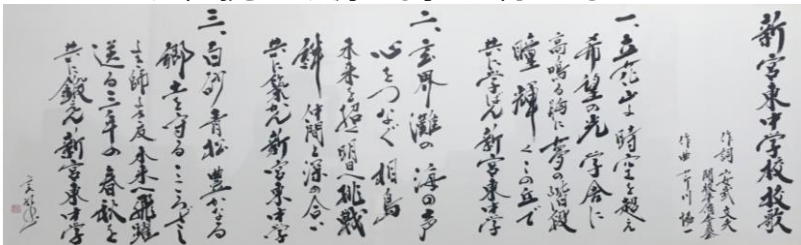 新宮東中学校校歌
作詞 安武文夫
開校準備委員会
作曲 芹川
一、立花山よ時空を超え
希望の光 学舎に
高鳴る胸に夢の階段
瞳輝くこの丘で
共に学ばん新宮東中学
二、玄界灘の海の声
心をつなぐ相島
未来を招く明日へ挑戦
絆 仲間と深め合い
共に築かん新宮東中学
三、白砂青松豊かなる
郷土を守るこころざし
よき師よき友未来へ飛躍
送る三年の春秋を
共に鍛えん新宮東中学